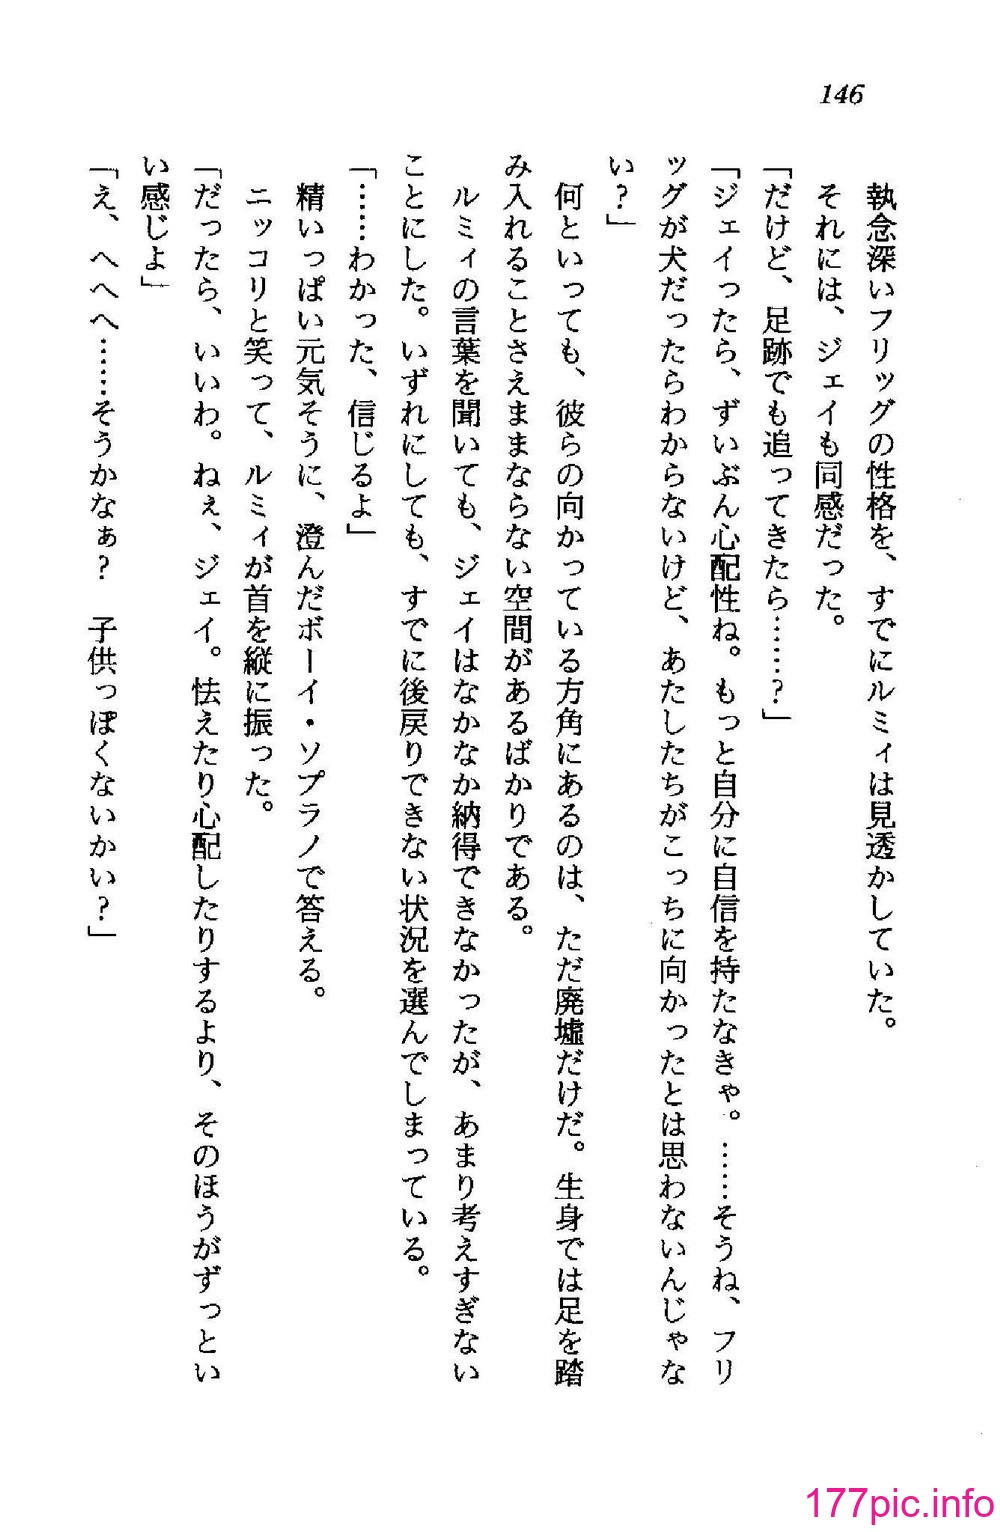 146
執念深いフリッグの性格を、すでにルミィは見透かしていた。
それには、ジェイも同感だった。
「だけど、足跡でも追ってきたら……？」
「ジェイったら、ずいぶん心配性ね。もっと自分に自信を持たなきゃ。……そうね、フリ
ッグが犬だったらわからないけど、あたしたちがこっちに向かったとは思わないんじゃな
い？」
何といっても、彼らの向かっている方角にあるのは、ただ廃墟だけだ。生身では足を踏
み入れることさえままならない空間があるばかりである。
ルミィの言葉を聞いても、ジェイはなかなか納得できなかったが、あまり考えすぎない
ことにした。いずれにしても、すでに後戻りできない状況を選んでしまっている。
「……わかった、信じるよ」
精いっぱい元気そうに、澄んだボーイ・ソプラノで答える。
ニッコリと笑って、ルミィが首を縦に振った。
「だったら、いいわ。ねぇ、ジェイ。怯えたり心配したりするより、そのほうがずっとい
い感じよ」
「え、へへへ……そうかなぁ？　子供っぽくないかい？」
177pic.info